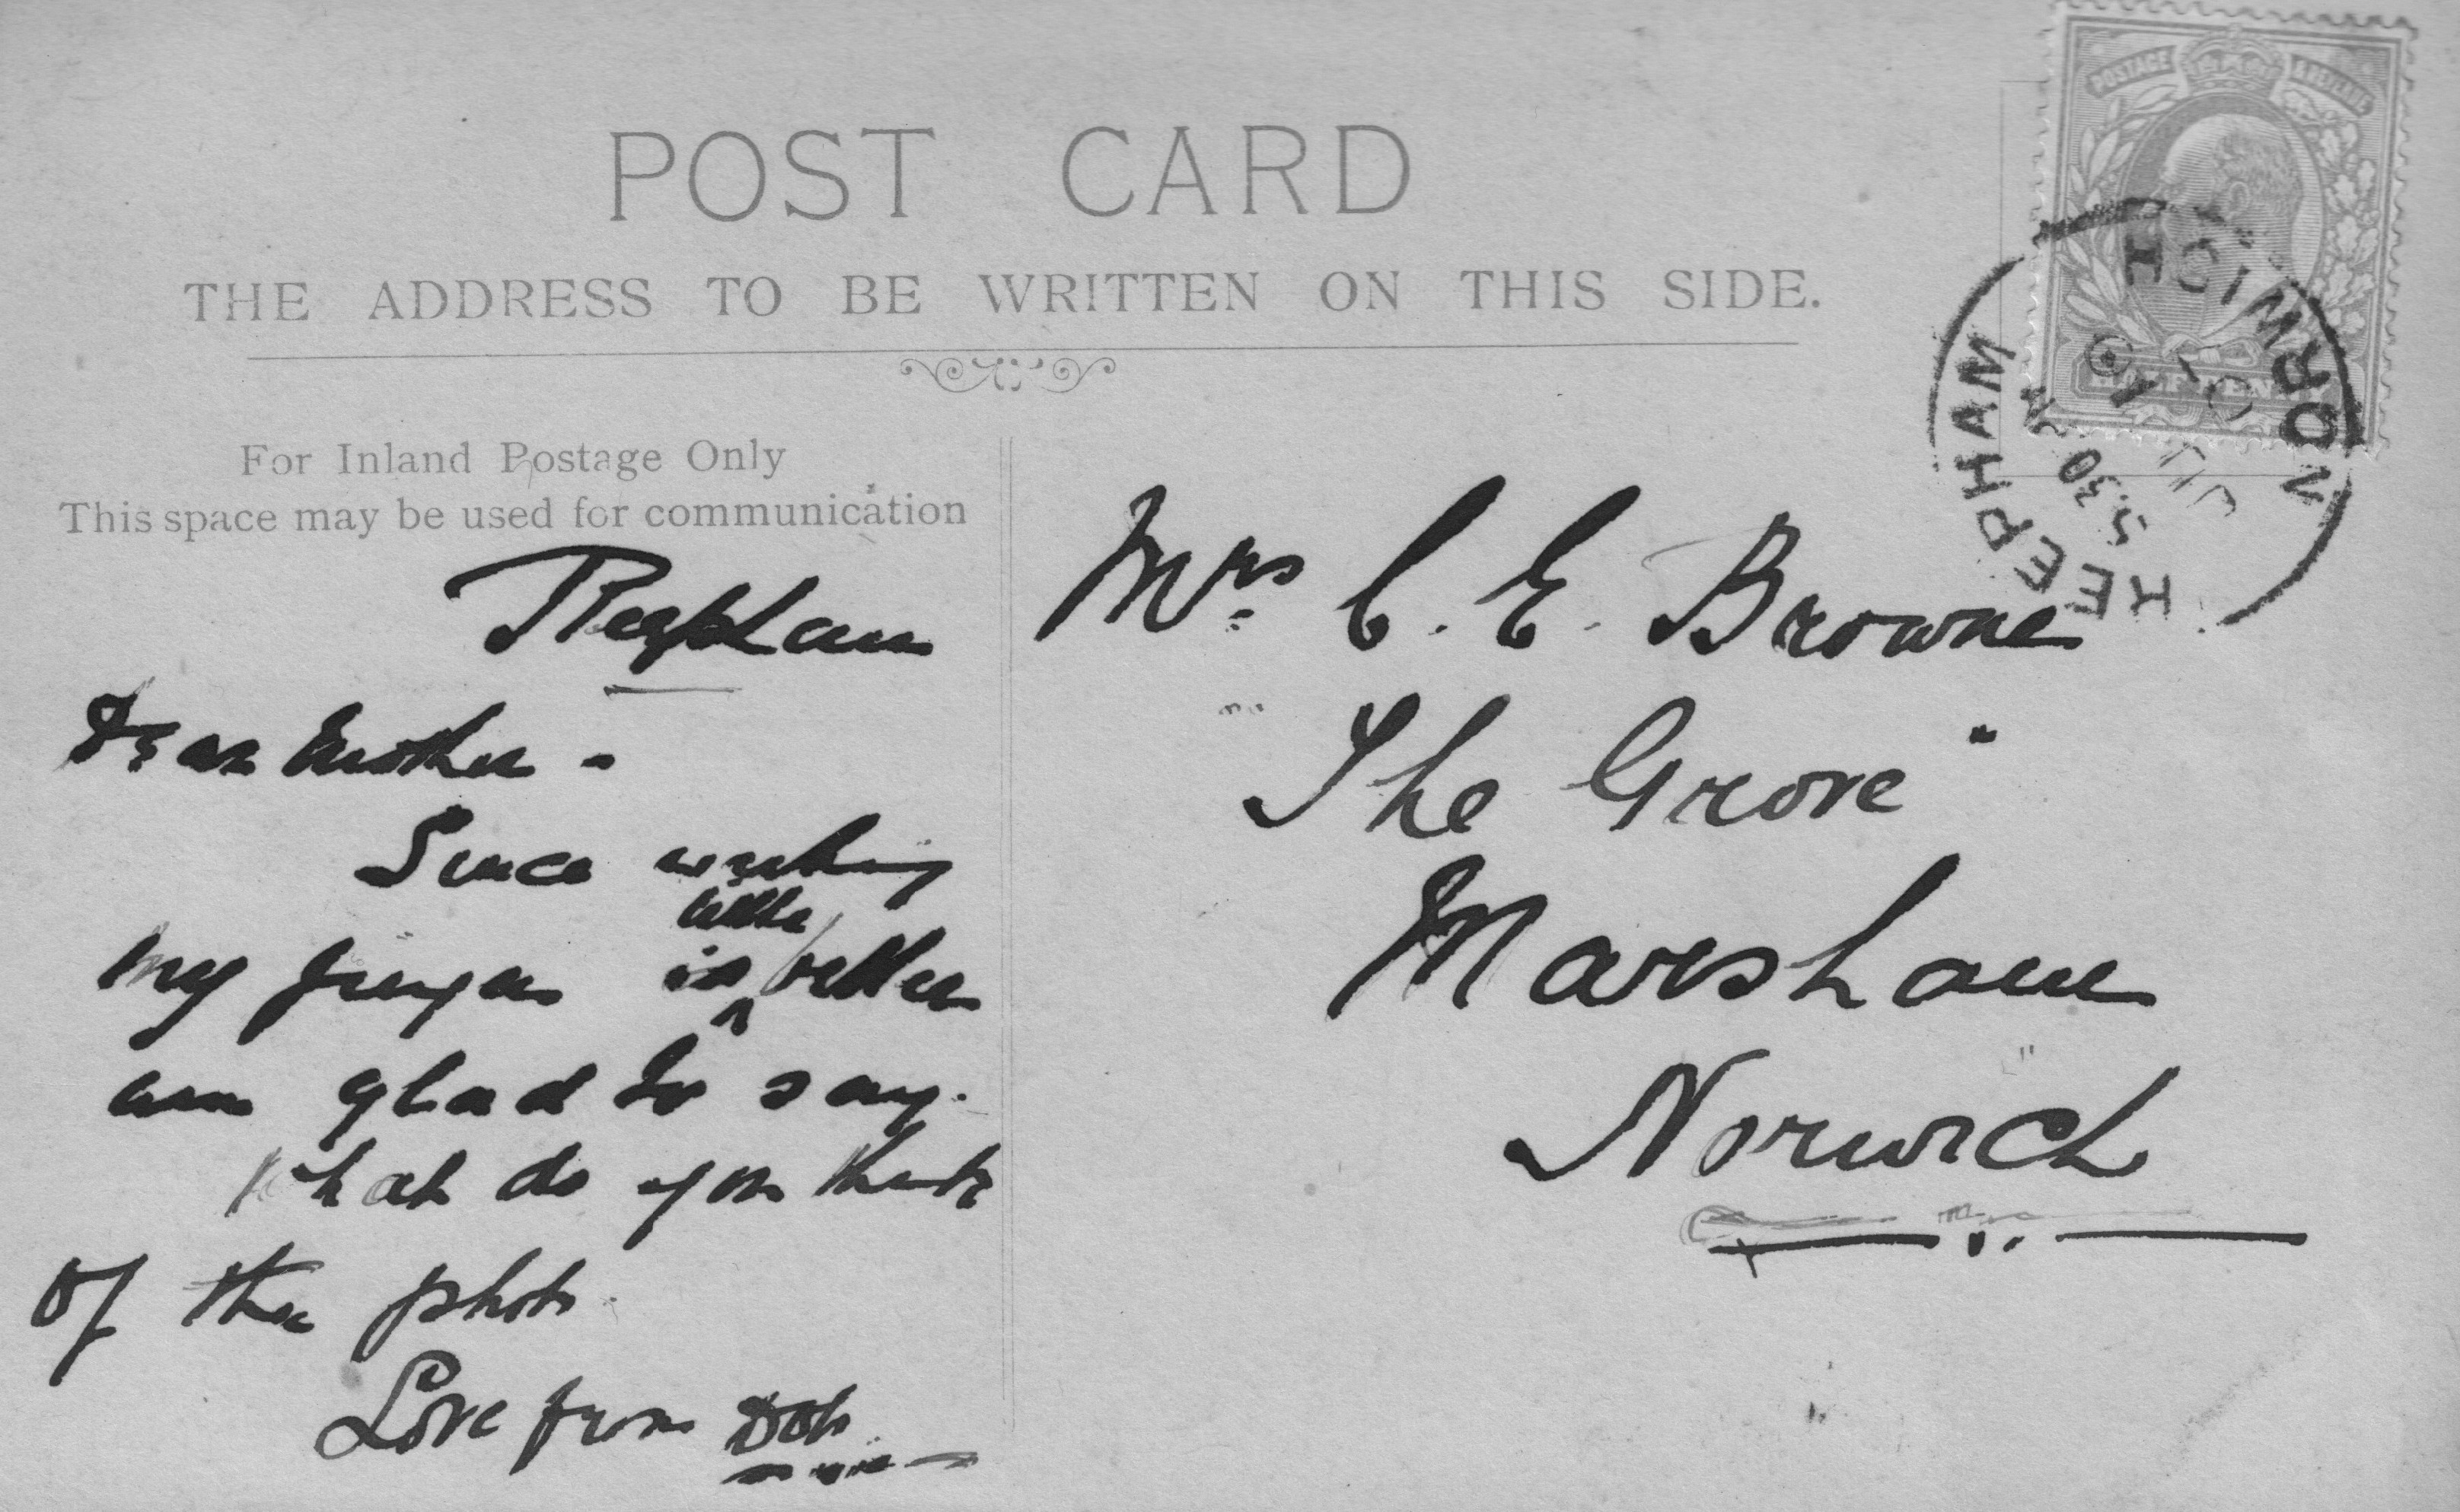 POST CARD
THE ADDRESS TO BE WRITTEN ON THIS SIDE.
POSTAGE & REVENUE
HALFPENNY
REEPHAM
NORWICH
5.30 PM
JY
10
For Inland Postage Only
This space may be used for communication
Reepham
Dear Mother -
Since writing
my finger is little better
am glad to say.
What do you think
of the photo
Love from
Mrs C. E. Browne
The Grove"
Marsham
Norwich